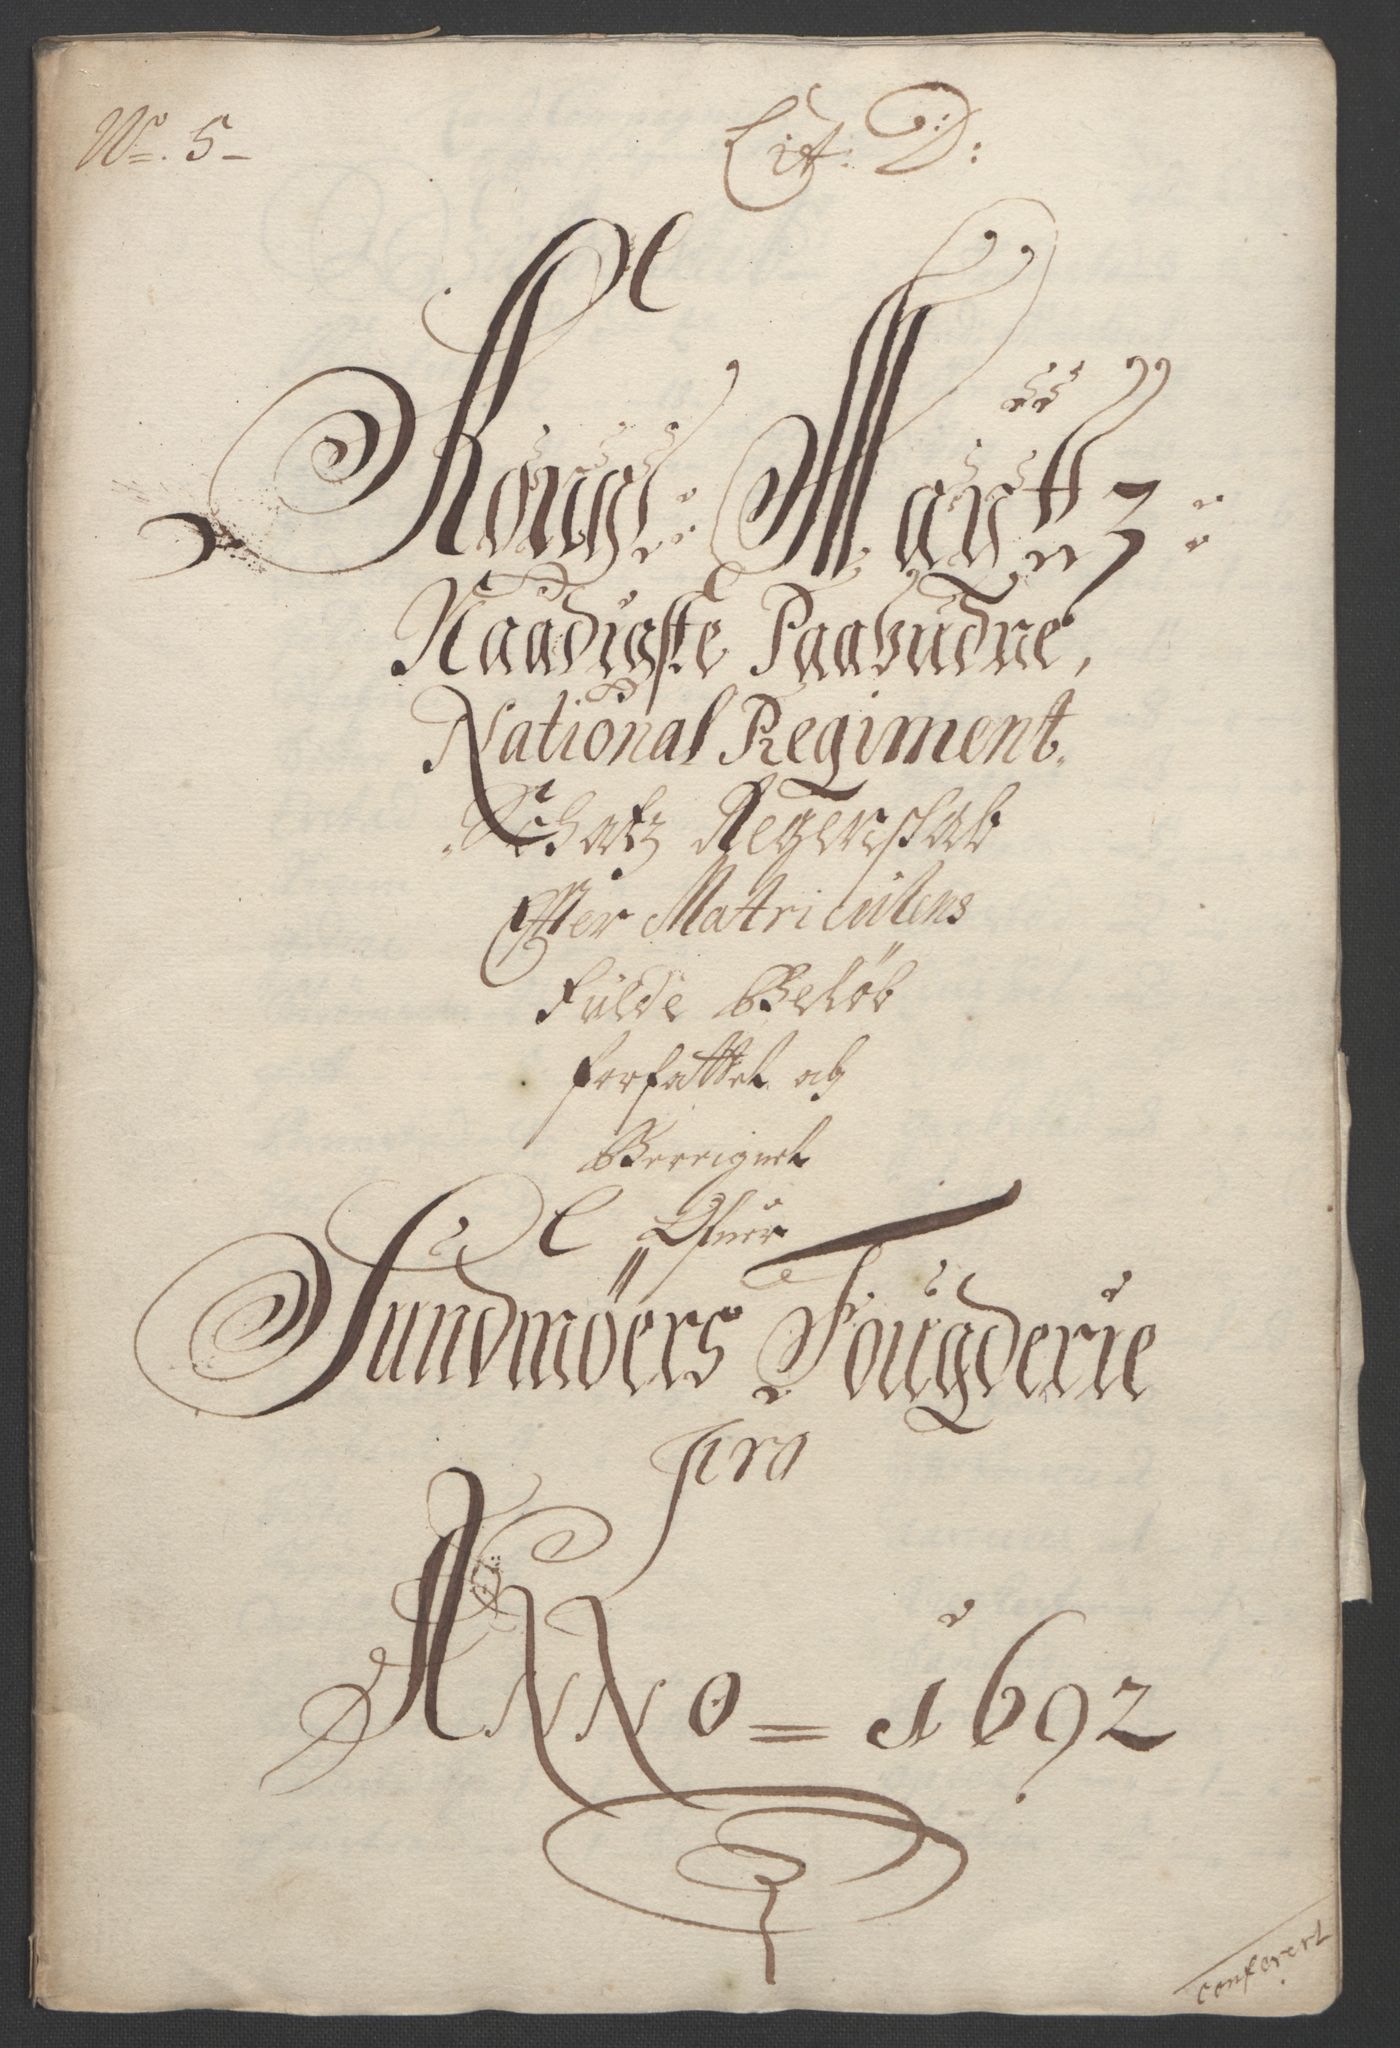 No. 5
Lit: D:
Kongl: Maÿttz:
Naadigste Paabudne,
National Regiment.
Schatz Regenskab
Efter Matriculens
fulde Beløb
forfattet og
Beregnet
Ofver
Sundmöers Fougderie
pro
ANNO = 1692
conferert